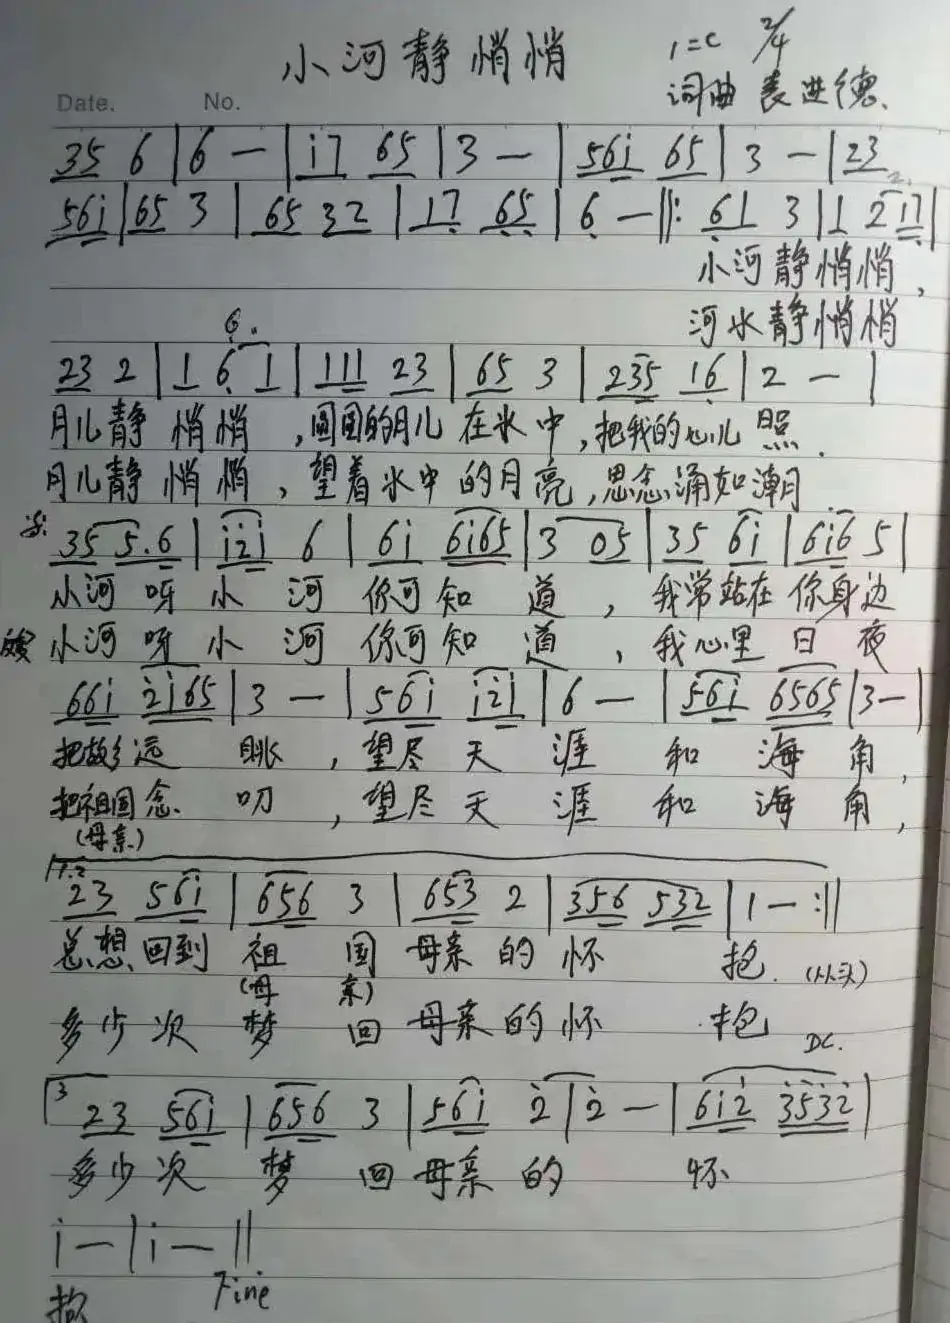 小河静悄悄
1=C 2/4
Date. No. 词曲 袁进德
35 6 | 6 — | i7 65 | 3 — | 56i 65 | 3 — | 23
56i | 65 3 | 65 32 | 17 65 | 6 — ‖: 61 3 | 1 2 17 |
小河静悄悄,
河水静悄悄
6.
23 2 | 1 6 1 | 111 23 | 65 3 | 235 16 | 2 — |
月儿静悄悄,圆圆的月儿在水中,把我的心儿照.
月儿静悄悄,望着水中的月亮,思念涌如潮
35 5.6 | i2i 6 | 6i 6i65 | 3 05 | 35 6i | 6i6 5 |
小河呀小河你可知道,我常站在你身边
小河呀小河你可知道,我心里日夜
66i 2i65 | 3 — | 56i i2i | 6 — | 56i 6565 | 3— |
把故乡远眺,望尽天涯和海角,
把祖国念叨,望尽天涯和海角,
(母亲)
1.2
23 56i | 656 3 | 653 2 | 356 532 | 1 — :‖
总想回到祖国母亲的怀抱. (从头)
(母亲)
多少次梦回母亲的怀抱 DC.
3
23 56i | 656 3 | 56i 2 | 2 — | 6i2 3532 |
多少次梦回母亲的怀
i — | i — ‖
抱 Fine